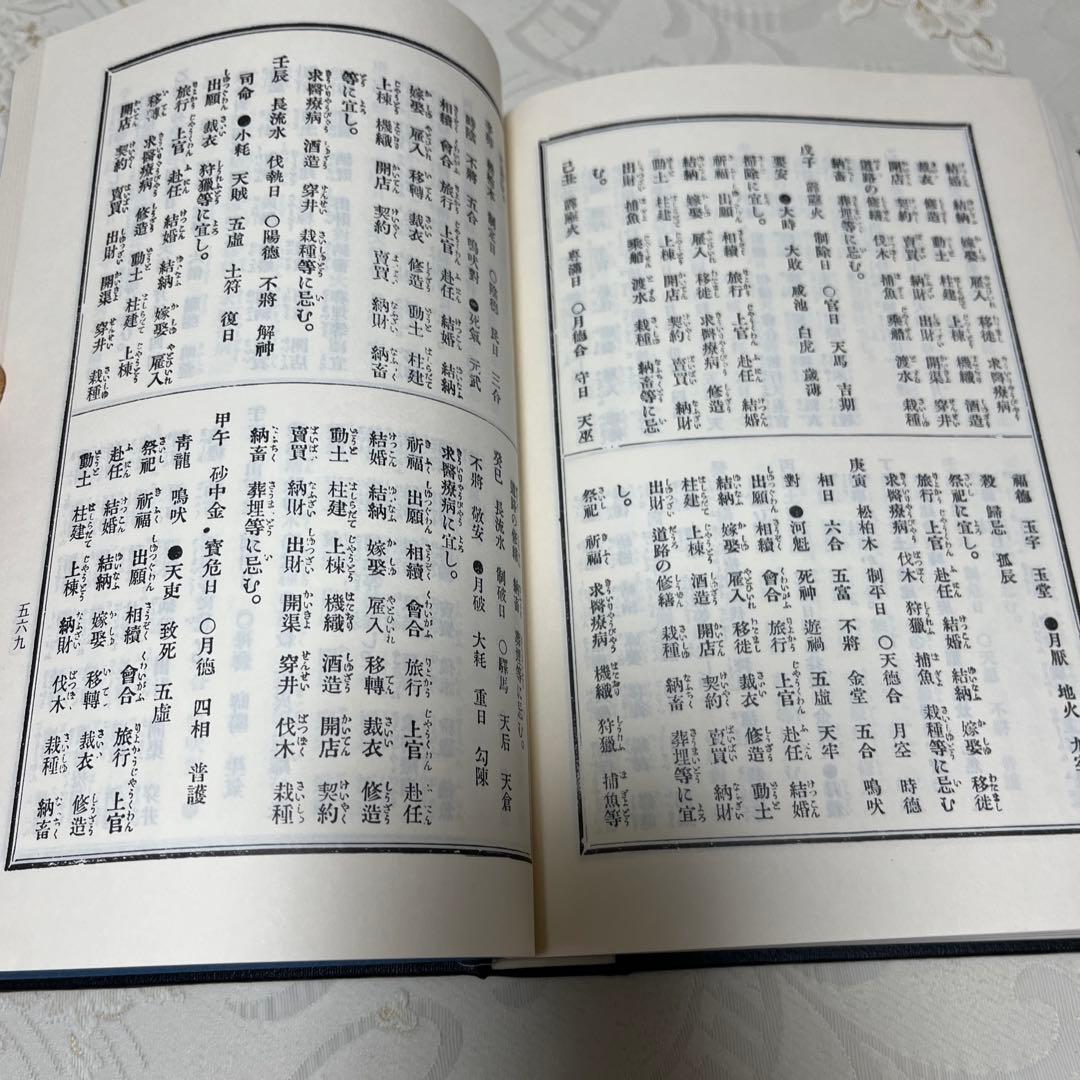 結婚 結納 嫁娶 雇入 移徙 求醫療病
裁衣 修造 動土 柱建 上棟 機織 酒造
開店 契約 賣買 納財 出財 開渠 穿井
道路の修繕 伐木 捕魚 乘船 渡水 栽種
納畜 葬埋等に忌む。
戊子 霹靂火 制除日 〇官日 天馬 吉期
要安 ●大時 大敗 咸池 白虎 歲薄
掃除に宜し。
祈福 出願 相續 旅行 上官 赴任 結婚
結納 嫁娶 移徙 求醫療病 修造
動土 柱建 上棟 開店 契約 賣買 納財
出財 捕魚 乘船 渡水 栽種 納畜等に忌
む。
己丑 霹靂火 專滿日 〇月德合 守日 天巫
福德 玉宇 玉堂 ●月厭 地火
殺 歸忌 孤辰
祭祀に宜し。
旅行 上官 赴任 結婚 結納 嫁娶 移徙
求醫療病 伐木 狩獵 捕魚 栽種等に忌む
庚寅 松柏木 制平日 〇天德合 月空 時德
相日 六合 五富 不將 金堂 五合 鳴吠
對 ●河魁 死神 遊禍 五虛 天牢
出願 相續 會合 旅行 上官 赴任 結婚
結納 嫁娶 雇入 移徙 裁衣 修造 動土
柱建 上棟 酒造 開店 契約 賣買 納財
出財 道路の修繕 栽種 葬埋等に宜
し。
祭祀 祈福 求醫療病 機織 狩獵 捕魚等
時陰 不將 五合 鳴吠對 ●死氣 元武
相續 會合 旅行 上官 赴任 結婚 結納
嫁娶 雇入 移轉 裁衣 修造 動土 柱建
上棟 機織 開店 契約 賣買 納財 納畜
等に宜し。
求醫療病 酒造 穿井 栽種等に忌む。
壬辰 長流水 伐執日 〇陽德 不將 解神
司命 ●小耗 天賊 五虛 土符 復日
出願 裁衣 狩獵等に宜し。
旅行 上官 赴任 結婚 結納 嫁娶 雇入
移轉 求醫療病 修造 動土 柱建 上棟
開店 契約 賣買 出財 開渠 穿井 栽種
癸巳 長流水 制破日 〇驛馬 天后 天倉
不將 敬安 ●月破 大耗 重日 勾陳
求醫療病に宜し。
祈福 出願 相續 會合 旅行 上官 赴任
結婚 結納 嫁娶 雇入 移轉 裁衣 修造
動土 柱建 上棟 機織 酒造 開店 契約
賣買 納財 出財 開渠 穿井 伐木 栽種
納畜 葬埋等に忌む。
甲午 砂中金 寶危日 〇月德 四相 普護
青龍 鳴吠 ●天吏 致死 五虛
祭祀 祈福 出願 相續 會合 旅行 上官
赴任 結婚 結納 嫁娶 移轉 裁衣 修造
動土 柱建 上棟 納財 伐木 栽種 納畜
五六九